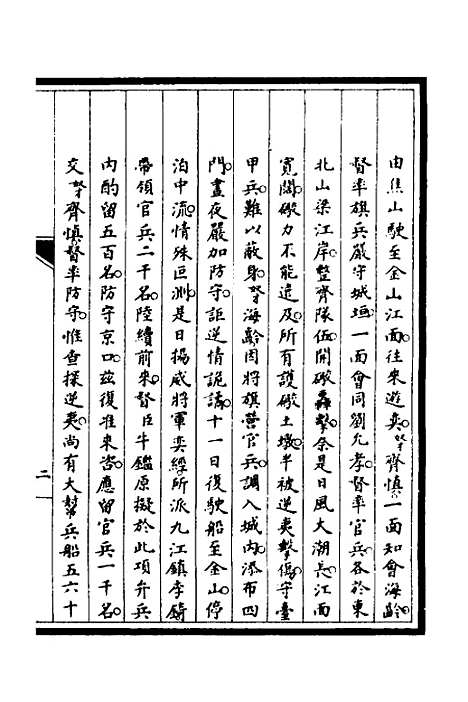 由焦山駛至金山江面往來遊奕。奴才齊慎一面知會海齡。
督率旗兵嚴守城垣。一面會同劉允孝督率官兵。各於東
北山梁江岸。整齊隊伍。開礮轟擊。余是日風大潮長。江面
寬闊。礮力不能遠及。所有護礮土墩。半被逆夷擊傷。守臺
甲兵。難以蔽身。奴才海齡因將旗營官兵。調入城內。添布四
門。晝夜嚴加防守。詎逆情詭譎。十一日復駛船至金山。停
泊中流。情殊叵測。是日揚威將軍奕經所派九江鎮李錡
帶領官兵二千名。陸續前來。督臣牛鑑原擬於此項弁兵
內酌留五百名。防守京口。茲復准來咨。應留官兵一千名。
交奴才齊慎督率防守。惟查探逆夷。尚有大幫兵船五六十
二